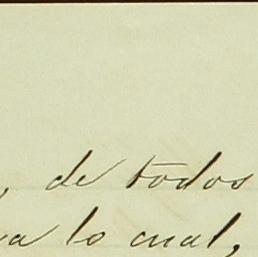 , de todos
a lo cual,